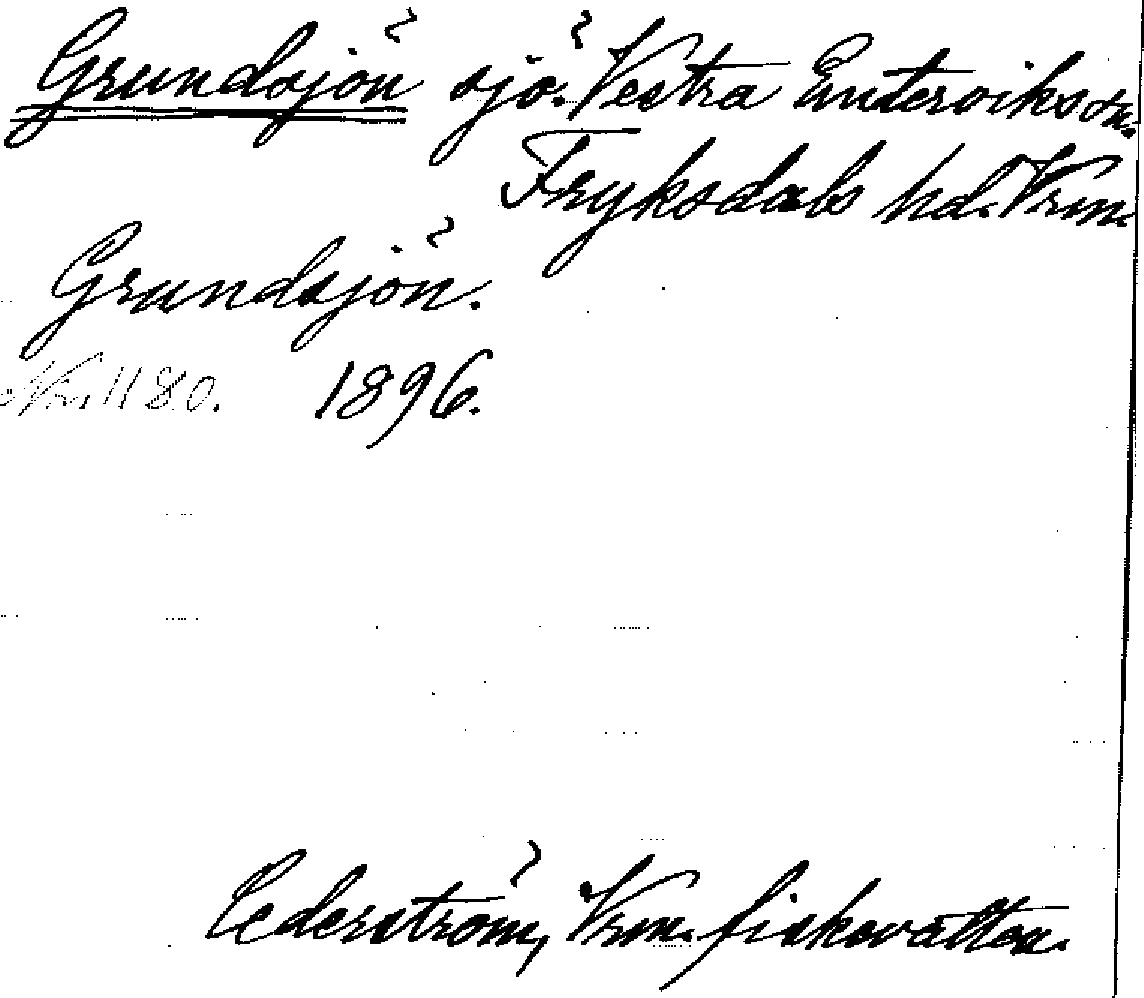 Grundsjön sjö. Vestra Emterviks sn.
Fryksdals hd. Vrm.
Grundsjön.
Nr. 1180. 1896.
Cederström, Vrm. fiskevatten.